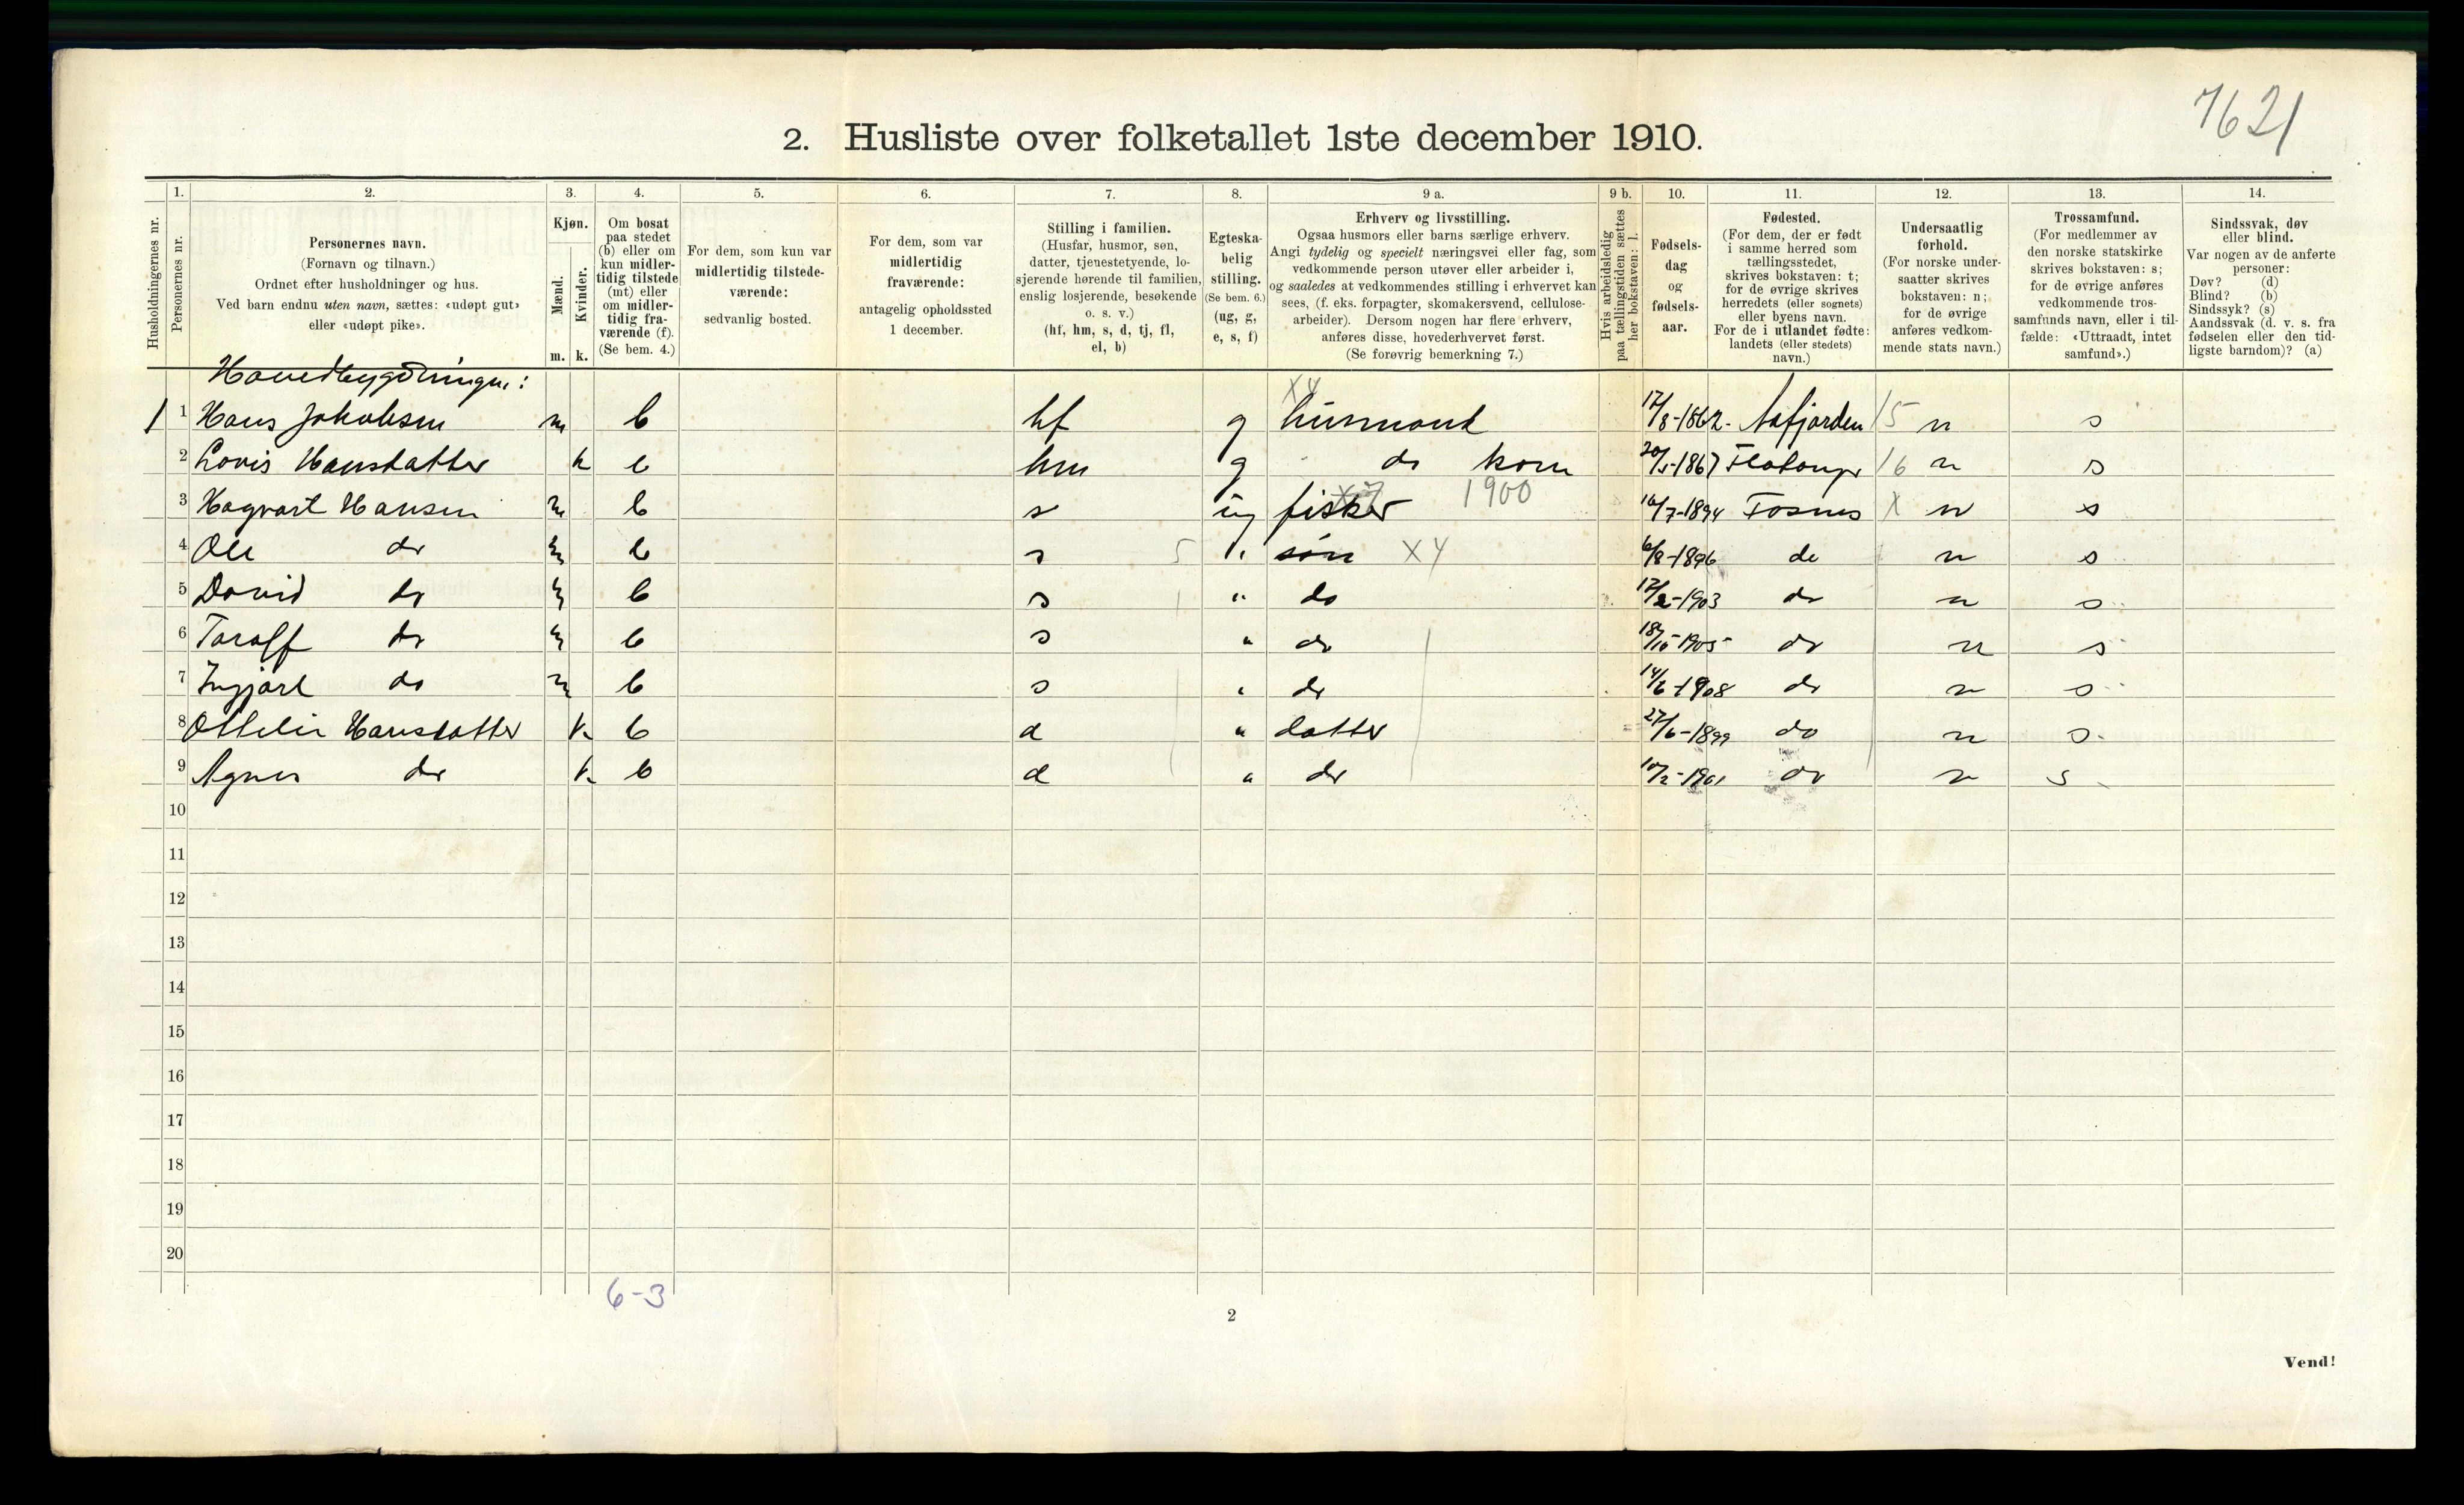 7621
2. Husliste over folketallet 1ste december 1910.
Husholdningernes nr.
1. Personernes nr.
2. Personernes navn. (Fornavn og tilnavn.) Ordnet efter husholdninger og hus. Ved barn endnu uten navn, sættes: «udøpt gut» eller «udøpt pike».
3. Kjøn. Mænd. m. Kvinder. k.
4. Om bosat paa stedet (b) eller om kun midlertidig tilstede (mt) eller om midlertidig fraværende (f). (Se bem. 4.)
5. For dem, som kun var midlertidig tilstedeværende: sedvanlig bosted.
6. For dem, som var midlertidig fraværende: antagelig opholdssted 1 december.
7. Stilling i familien. (Husfar, husmor, søn, datter, tjenestetyende, losjerende hørende til familien, enslig losjerende, besøkende o. s. v.) (hf, hm, s, d, tj, fl, el, b)
8. Egteskabelig stilling. (Se bem. 6.) (ug, g, e, s, f)
9 a. Erhverv og livsstilling. Ogsaa husmors eller barns særlige erhverv. Angi tydelig og specielt næringsvei eller fag, som vedkommende person utøver eller arbeider i, og saaledes at vedkommendes stilling i erhvervet kan sees, (f. eks. forpagter, skomakersvend, cellulose-arbeider). Dersom nogen har flere erhverv, anføres disse, hovederhvervet først. (Se forøvrig bemerkning 7.)
9 b. Hvis arbeidsledig paa tællingstiden sættes her bokstaven: l.
10. Fødselsdag og fødselsaar.
11. Fødested. (For dem, der er født i samme herred som tællingsstedet, skrives bokstaven: t; for de øvrige skrives herredets (eller sognets) eller byens navn. For de i utlandet fødte: landets (eller stedets) navn.)
12. Undersaatlig forhold. (For norske undersaatter skrives bokstaven: n; for de øvrige anføres vedkommende stats navn.)
13. Trossamfund. (For medlemmer av den norske statskirke skrives bokstaven: s; for de øvrige anføres vedkommende trossamfunds navn, eller i tilfælde: «Uttraadt, intet samfund».)
14. Sindssvak, døv eller blind. Var nogen av de anførte personer: Døv? (d) Blind? (b) Sindssyk? (s) Aandssvak (d. v. s. fra fødselen eller den tidligste barndom)? (a)
Hovedbygdningen:
X4
1 1 Hans Jakobsen m b hf g husmand 17/8-1862 Aafjorden 15 n s
2 Lovis Hansdatter k b hm g do kone 20/5-1867 16 n s
X7 1900
3 Hagvart Hansen m b s ug fisker 16/7-1894 Fosnes X n s
4 Ole do m b s 5 " søn X4 6/8-1896 do n s
5 David do m b s " do 17/2-1903 do n s
6 Toralf do m b s " do 18/10-1905 do n s
7 Ingjarl do m b s " do 14/6-1908 do n s
8 Ottelie Hansdatter k b d " datter 27/6-1899 do n s
9 Agnes do k b d " do 10/2-1901 do n s
10
11
12
13
14
15
16
17
18
19
20
6-3
2
Vend!